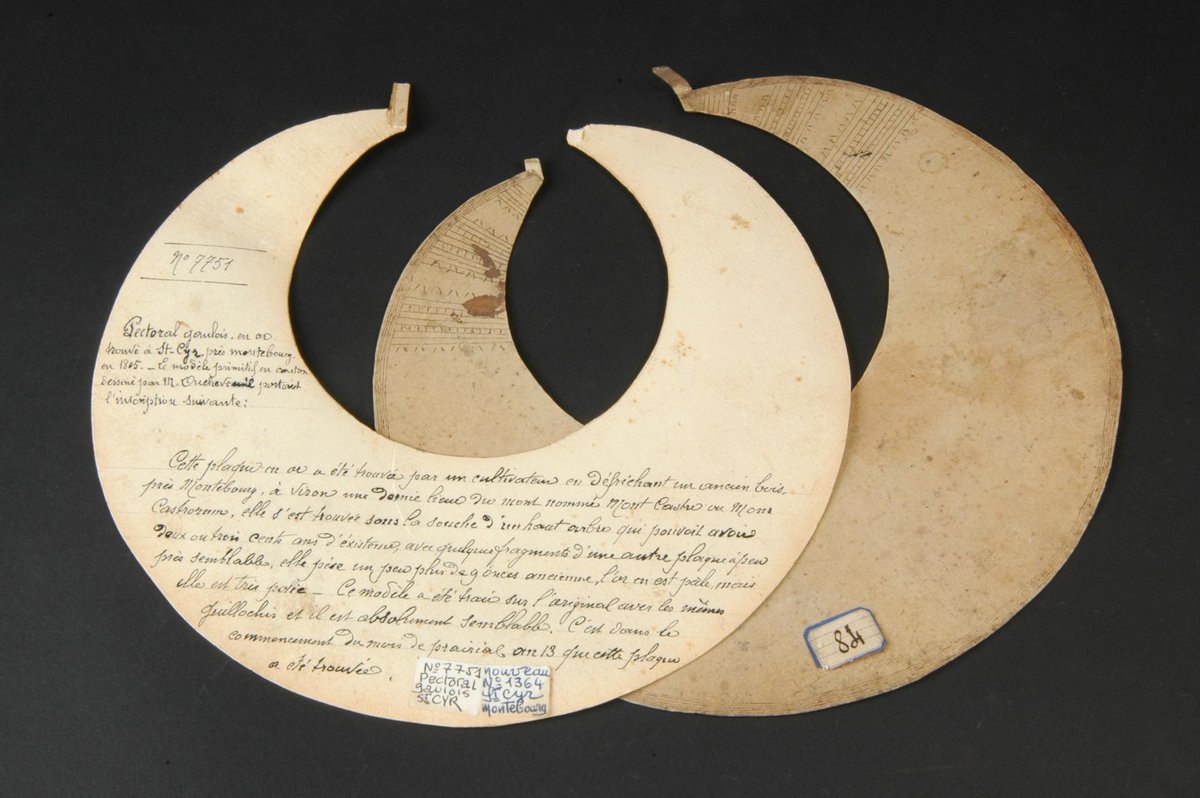 No 7751
Pectoral gaulois, en or
trouvé à St-Cyr, près montebourg
en 1805. – le modèle primitif en carton
dessiné par M. portait
l'inscription suivante :
Cette plaque en or a été trouvée par un cultivateur en défrichant un ancien bois,
près Montebourg, à viron une demie lieue du mont nommé Mont Castre ou Mons
Castrorum, elle s'est trouvée sous la souche d'un haut arbre qui pouvoit avoir
deux ou trois cents ans d'existence, avec quelques fragments d'une autre plaque à peu
près semblable, elle pèse un peu plus de 9 onces ancienne, l'or en est pâle mais
elle est très polie – Ce modèle a été tracé sur l'original avec les mêmes
guillochis et il est absolument semblable. C'est dans le
commencement du mois de prairial an 13 que cette plaque
a été trouvée.
No 7751
Pectoral
gaulois
St CYR
nouveau
No 1364
St Cyr
montebourg
84